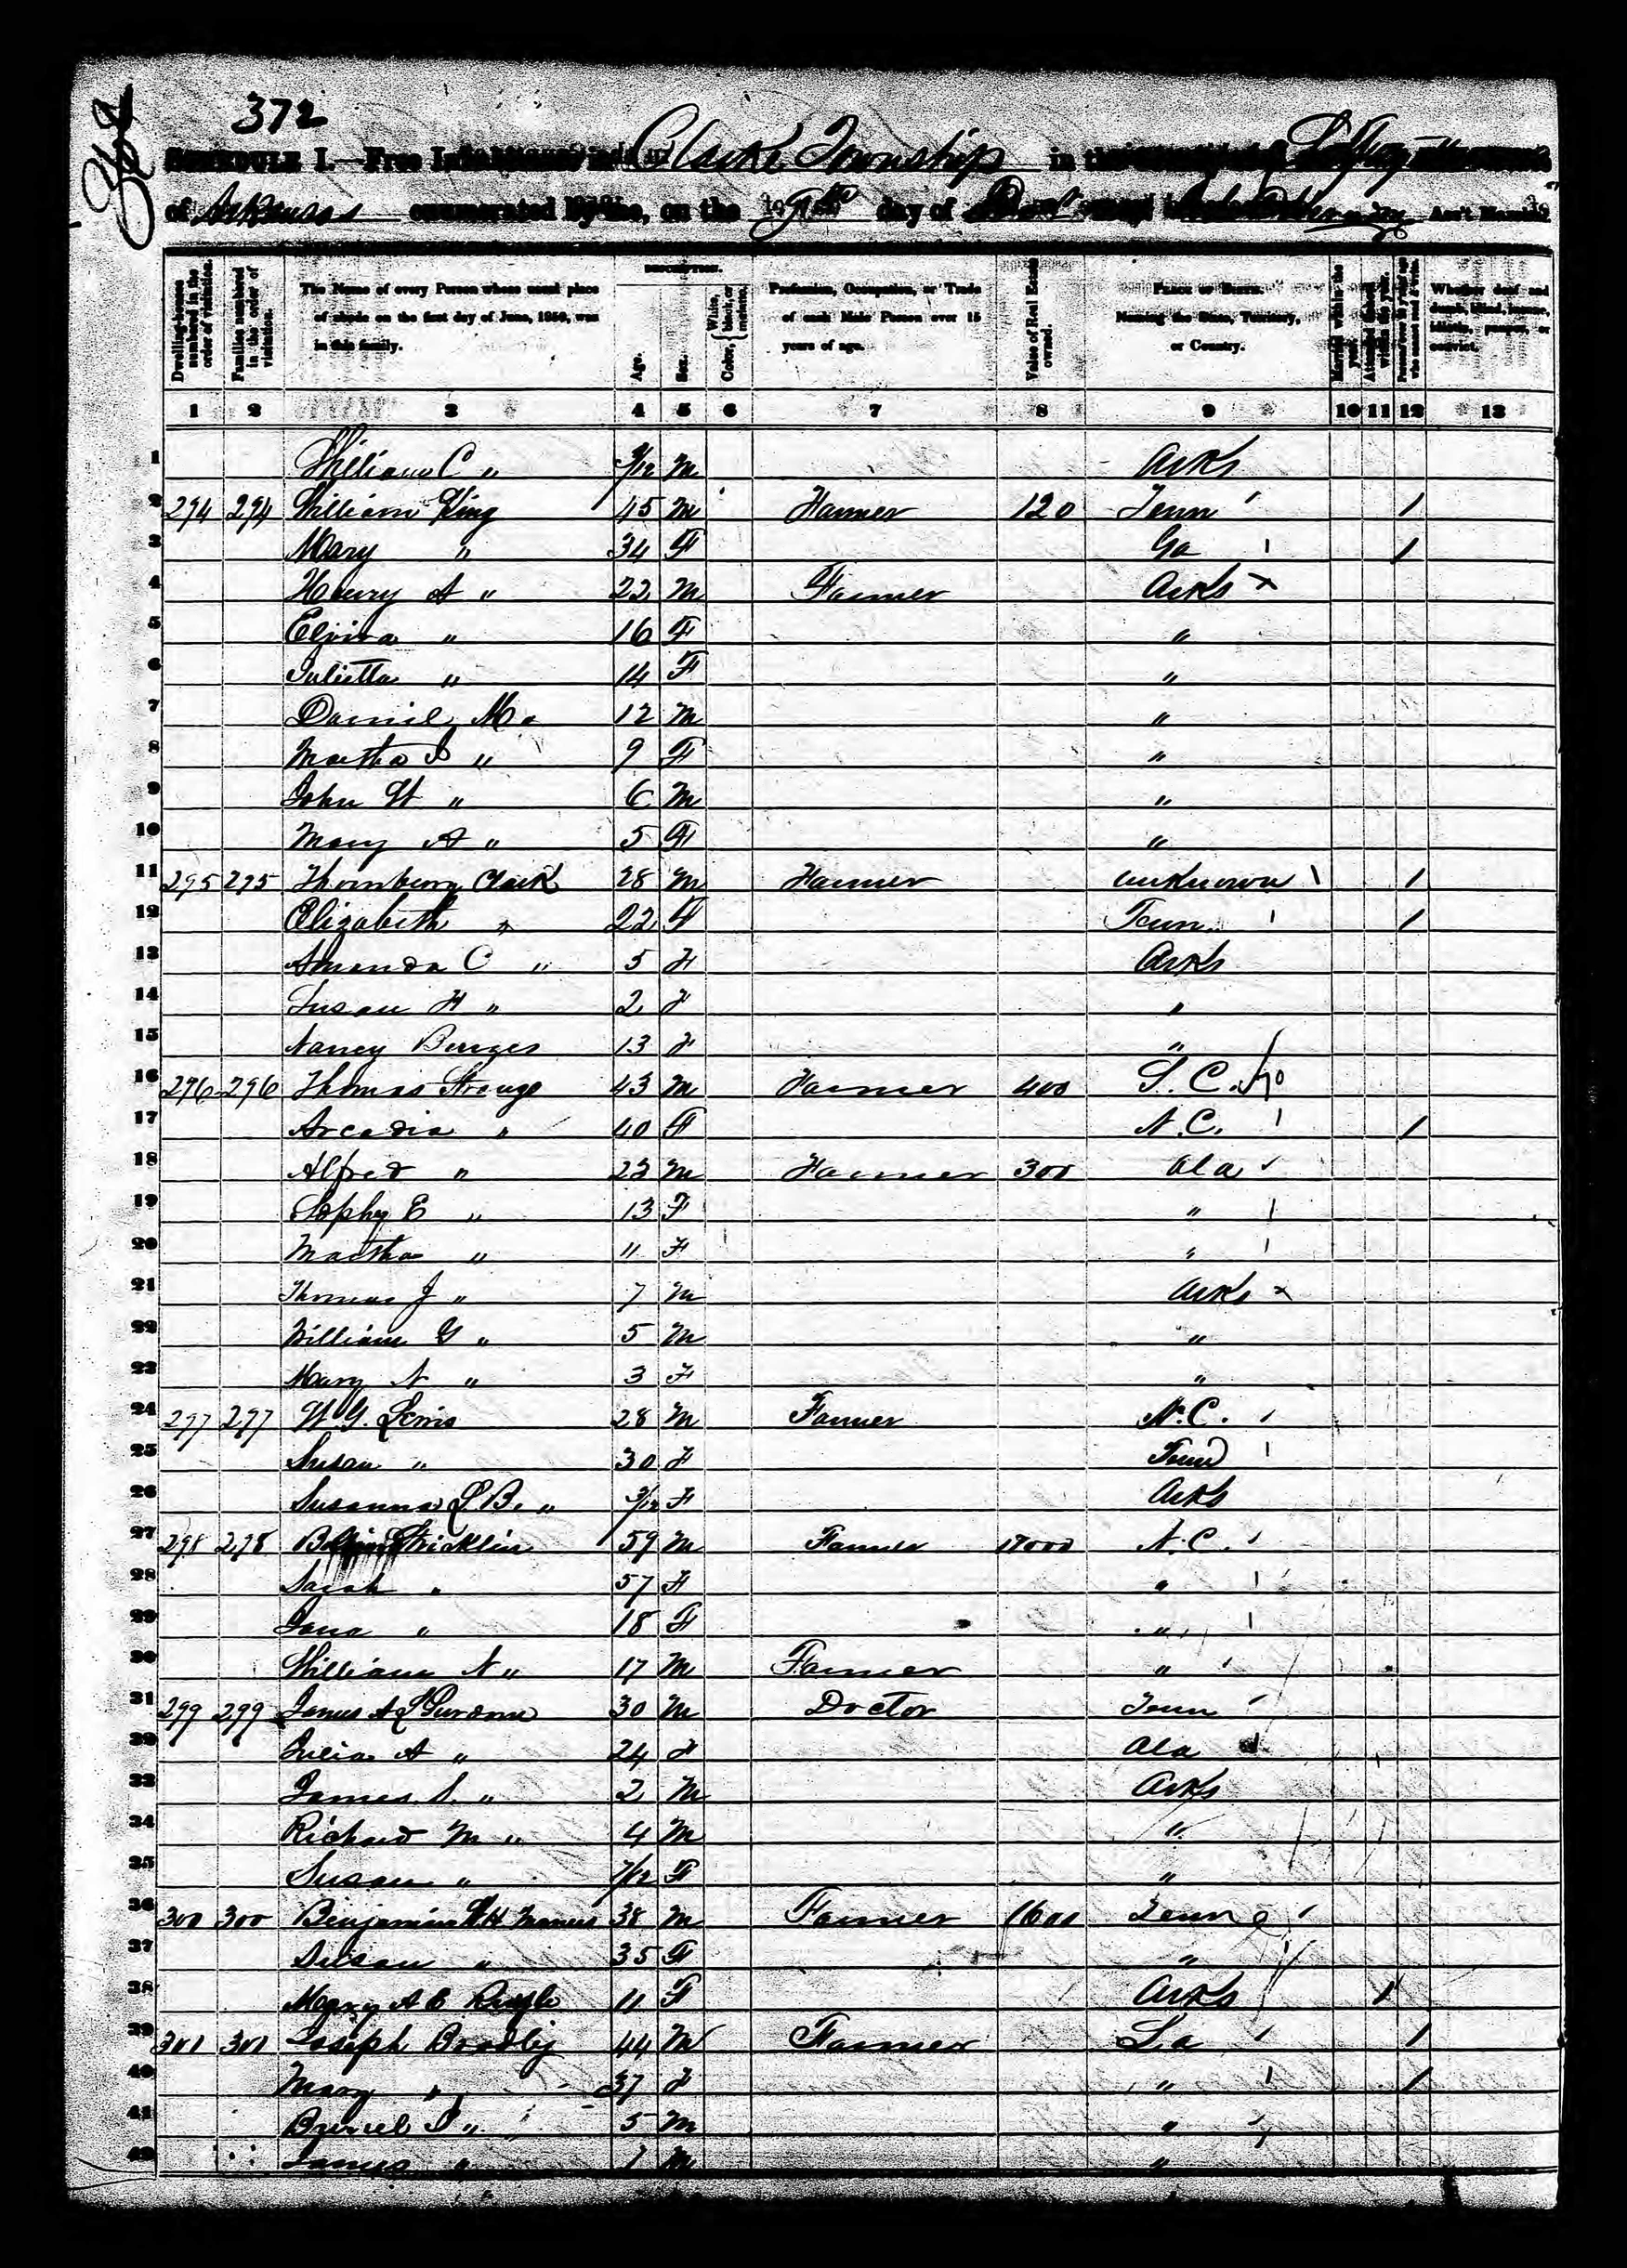 372
SCHEDULE I.—Free Inhabitants in Clarke Township in the County of Lafayette
of Arkansas enumerated by me, on the 9th day of Ass't Marshal.
DESCRIPTION.
Dwelling-houses numbered in the order of visitation.
Families numbered in the order of visitation.
The Name of every Person whose usual place of abode on the first day of June, 1850, was in this family.
Age.
Sex.
Color, White, black, or mulatto.
Profession, Occupation, or Trade of each Male Person over 15 years of age.
Value of Real Estate owned.
PLACE OF BIRTH. Naming the State, Territory, or Country.
Married within the year.
Attended School within the year.
Persons over 20 y'rs of age who cannot read & write.
Whether deaf and dumb, blind, insane, idiotic, pauper, or convict.
1 2 3 4 5 6 7 8 9 10 11 12 13
1 William C " /12 M Arks
2 294 294 William King 45 M Farmer 120 Tenn / 1
3 Mary " 34 F Ga 1 1
4 Henry A " 22 M Farmer Arks x
5 Elvira " 16 F "
6 Julietta " 14 F "
7 Daniel M " 12 M "
8 Martha J " 9 F "
9 John W " 6 M "
10 Mary A " 5 F "
11 295 295 Thornberry Clark 28 M Farmer unknown 1 1
12 Elizabeth " 22 F Tenn 1 1
13 Amanda C " 5 F Arks
14 Susan H " 2 F "
15 Nancy Burges 13 F "
16 296 296 Thomas Strange 43 M Farmer 400 S.C.
17 Arcadia " 40 F N.C. 1 1
18 Alfred " 22 M Farmer 300 Ala /
19 Sophy E " 13 F " 1
20 Martha " 11 F " 1
21 Thomas J " 7 M Arks x
22 William G " 5 M "
23 Mary N " 3 F "
24 297 297 W.G. Lewis 28 M Farmer N.C. /
25 Susan " 30 F Tenn 1
26 Susanna L.B. " 3/12 F Arks
27 298 298 Stricklin 59 M Farmer N.C. /
28 Sarah " 57 F " 1
29 Jana " 18 F " 1
30 William N " 17 M Farmer " /
31 299 299 James A L 30 M Doctor Tenn /
32 Julia A " 24 F Ala
33 James S. " 2 M Arks
34 Richard M " 4 M "
35 Susan " 7/12 F "
36 300 300 Benjamin W H 38 M Farmer 1600 Tenn /
37 Susan " 35 F " 1
38 Mary A E 11 F Arks 1
39 301 301 Joseph Bradley 44 M Farmer La / 1
40 Mary " 37 F " 1 1
41 " 5 M " /
42 James " 1 M "